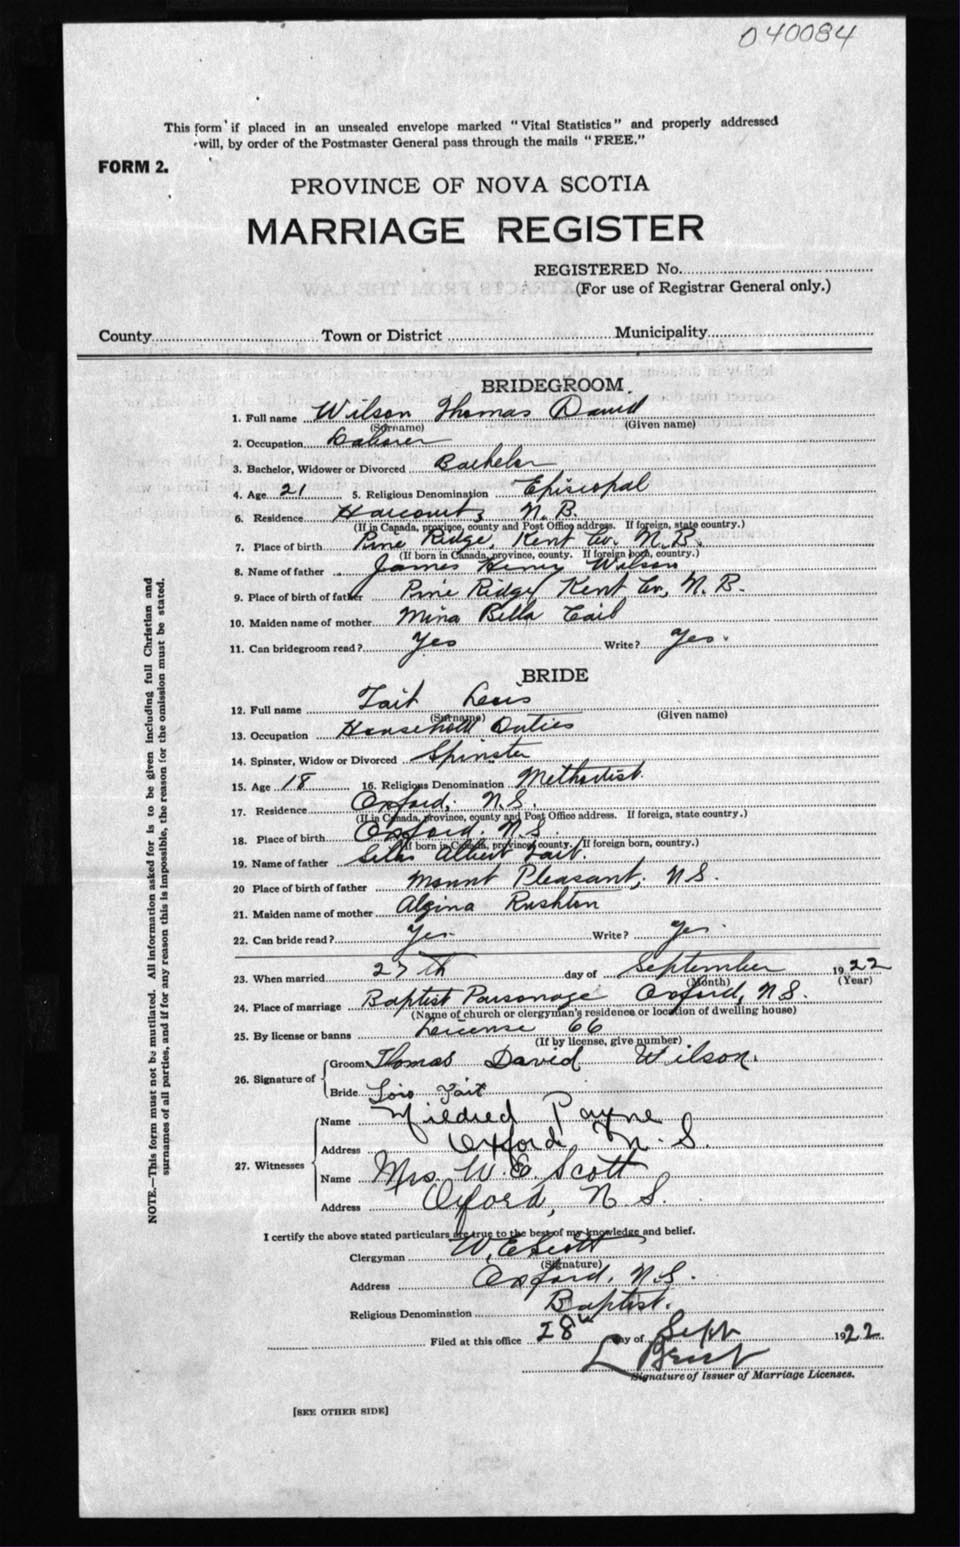 040084
This form if placed in an unsealed envelope marked "Vital Statistics" and properly addressed
will, by order of the Postmaster General pass through the mails "FREE."
FORM 2.
PROVINCE OF NOVA SCOTIA
MARRIAGE REGISTER
REGISTERED No.
(For use of Registrar General only.)
County Town or District Municipality
BRIDEGROOM
1. Full name Wilson Thomas David
(Surname) (Given name)
2. Occupation Laborer
3. Bachelor, Widower or Divorced Bachelor
4. Age 21 5. Religious Denomination Episcopal
6. Residence Harcourt, N.B.
(If in Canada, province, county and Post Office address. If foreign, state country.)
7. Place of birth Pine Ridge, Kent Co. N.B.
(If born in Canada, province, county. If foreign born, country.)
8. Name of father James Henry Wilson
9. Place of birth of father Pine Ridge Kent Co, N.B.
10. Maiden name of mother Mina Bella Cail
11. Can bridegroom read? Yes Write? Yes.
BRIDE
12. Full name Tait Lois
(Surname) (Given name)
13. Occupation Household Duties
14. Spinster, Widow or Divorced Spinster
15. Age 18 16. Religious Denomination Methodist.
17. Residence Oxford, N.S.
(If in Canada, province, county and Post Office address. If foreign, state country.)
18. Place of birth Oxford. N.S.
(If born in Canada, province, county. If foreign born, country.)
19. Name of father Silas Albert Tait.
20 Place of birth of father Mount Pleasant, N.S.
21. Maiden name of mother Algina Rushton
22. Can bride read? Yes. Write? Yes.
23. When married 27th day of September 1922
(Month) (Year)
24. Place of marriage Baptist Parsonage Oxford, N.S.
(Name of church or clergyman's residence or location of dwelling house)
25. By license or banns License 66
(If by license, give number)
26. Signature of Groom Thomas David Wilson.
Bride Lois Tait
27. Witnesses
Name Mildred Payne
Address Oxford, N.S.
Name Mrs. W E Scott
Address Oxford, N.S.
I certify the above stated particulars are true to the best of my knowledge and belief.
Clergyman W.E. Scott
(Signature)
Address Oxford, N.S.
Religious Denomination Baptist.
Filed at this office 28th day of Sept 1922
Signature of Issuer of Marriage Licenses.
[SEE OTHER SIDE]
NOTE.—This form must not be mutilated. All information asked for is to be given including full Christian and
surnames of all parties, and if for any reason this is impossible, the reason for the omission must be stated.